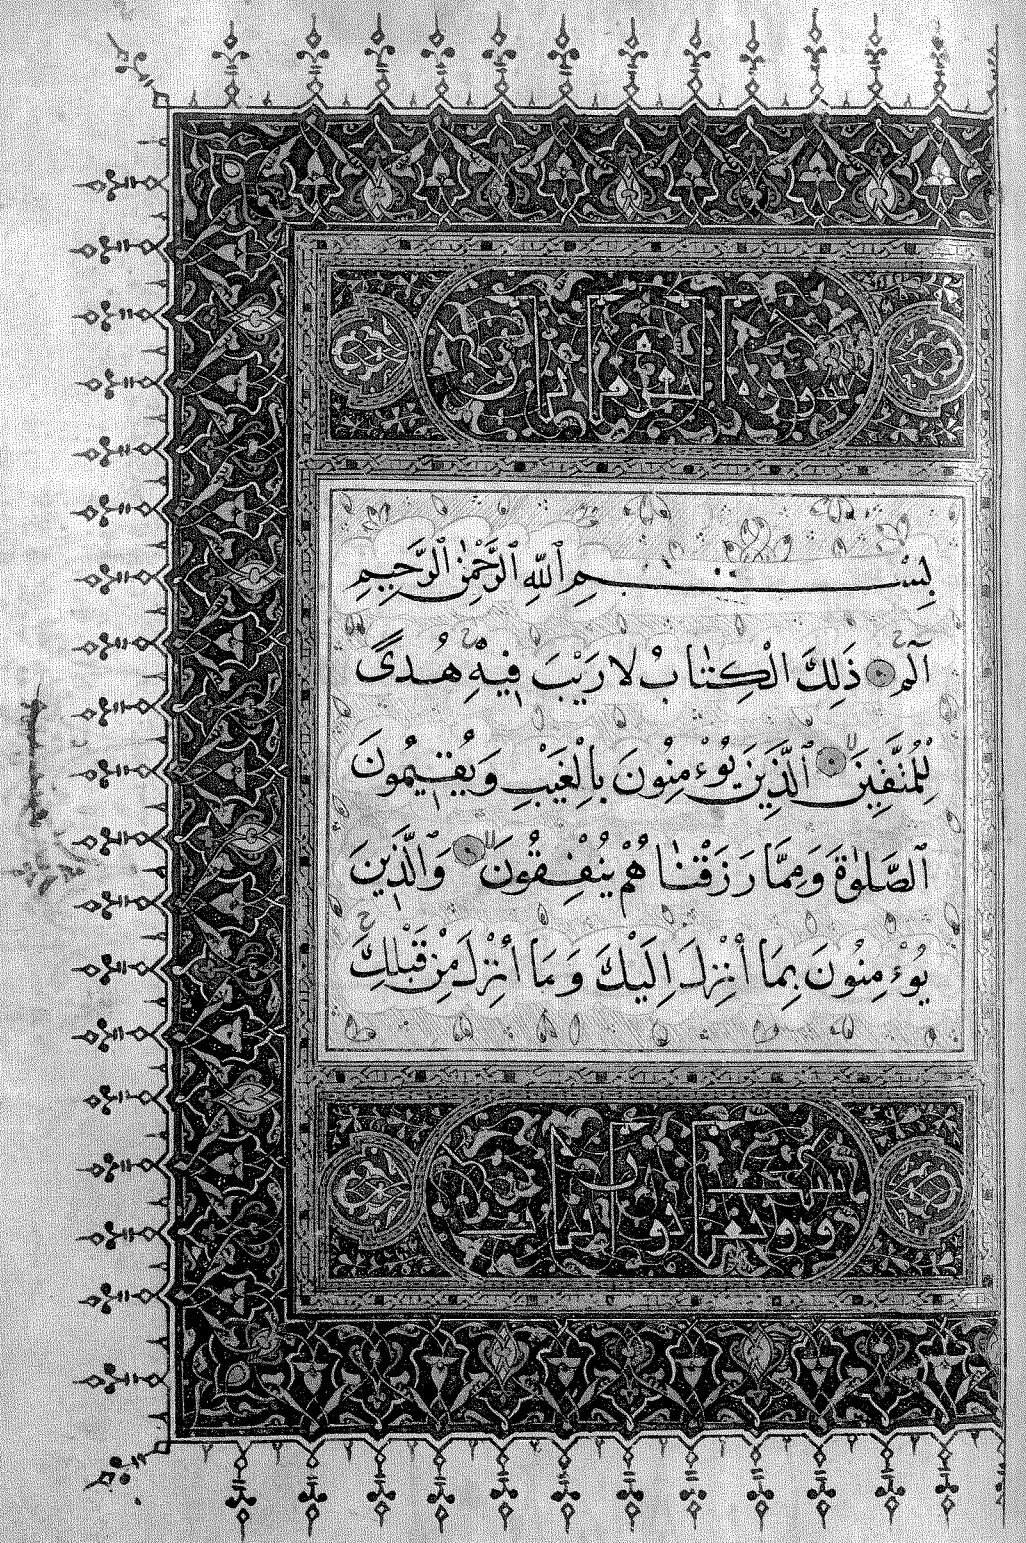 بِسْمِ ٱللَّهِ ٱلرَّحْمٰنِ ٱلرَّحِيمِ
آلم ذَلِكَ الْكِتٰابُ لا رَيْبَ فِيهِ هُدىً
لِلْمُتَّقِينَ ٱلَّذِينَ يُؤْمِنُونَ بِالْغَيْبِ وَيُقِيمُونَ
ٱلصَّلوٰةَ وَمِمَّا رَزَقْنٰاهُمْ يُنْفِقُونَ وَٱلَّذِينَ
يُؤْمِنُونَ بِمَا أُنْزِلَ اِلَيْكَ وَمَا أُنْزِلَ مِنْ قَبْلِكَ